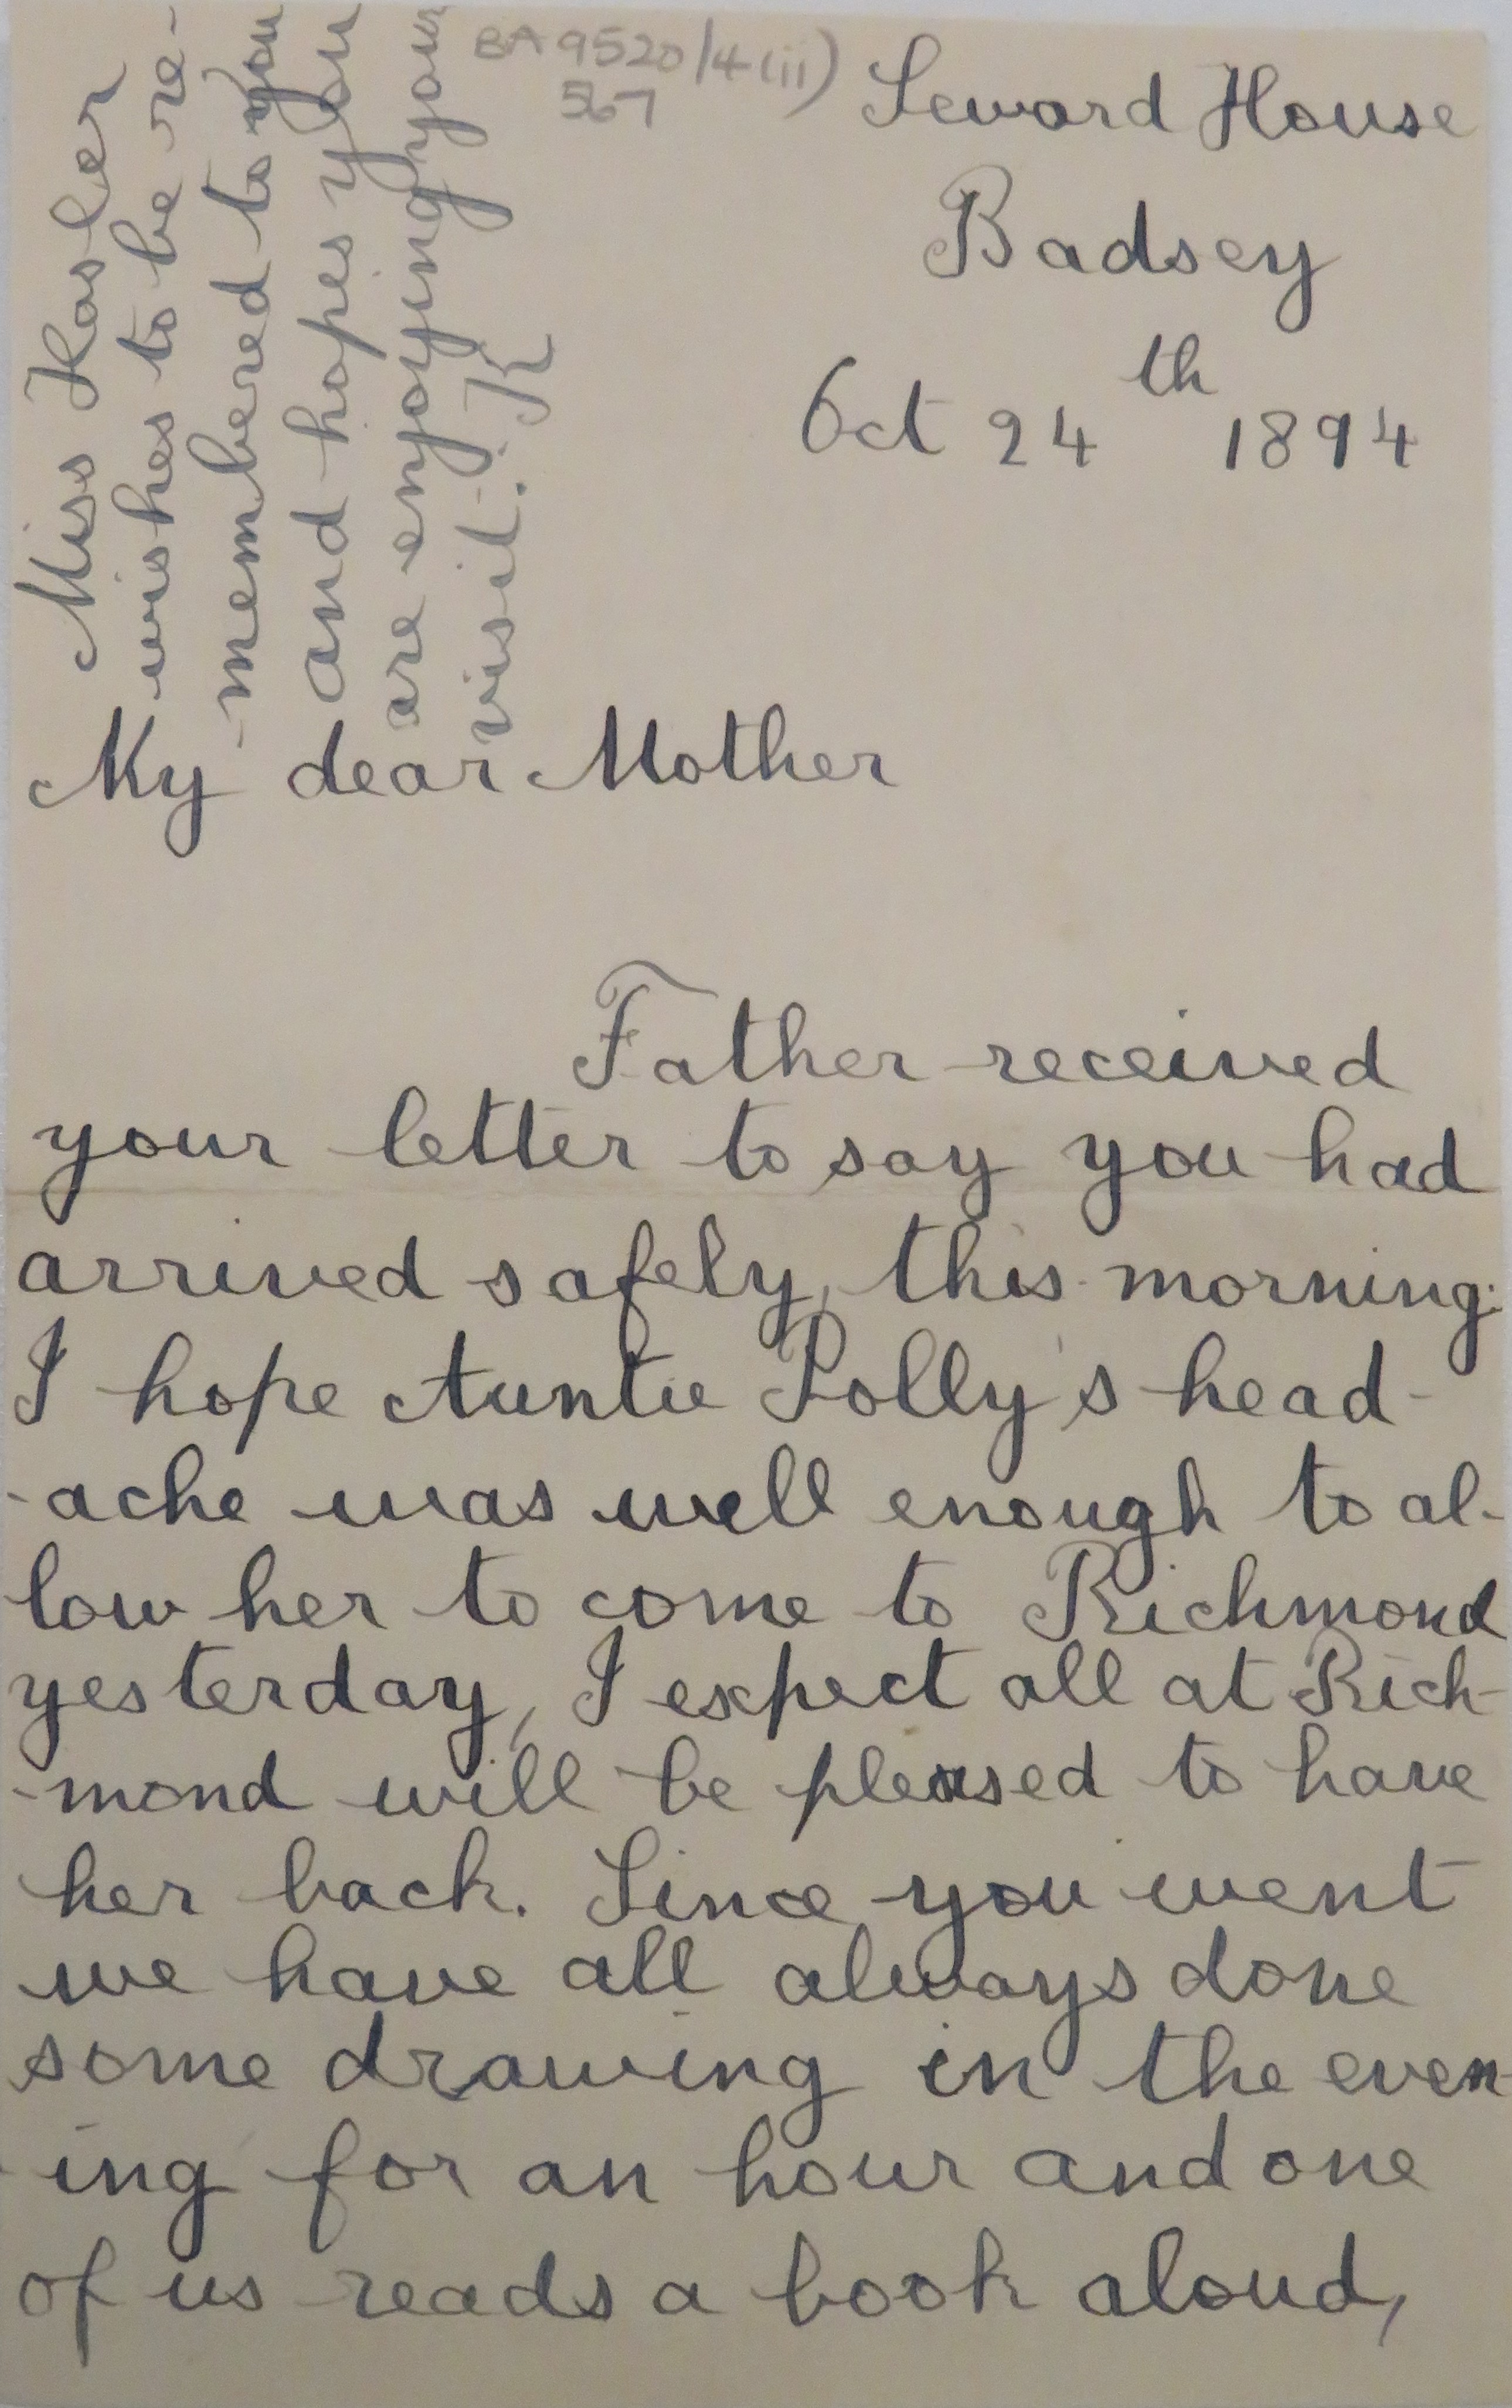 BA 9520/4(ii)
567
Seward House
Badsey
Oct 24th 1894
Miss Hasler
wishes to be re-
-membered to you
and hopes you
are enjoying your
visit. K
My dear Mother
Father received
your letter to say you had
arrived safely, this morning.
I hope Auntie Polly's head-
-ache was well enough to al-
low her to come to Richmond
yesterday, I expect all at Rich-
-mond will be pleased to have
her back. Since you went
we have all always done
some drawing in the even-
-ing for an hour and one
of us reads a book aloud,